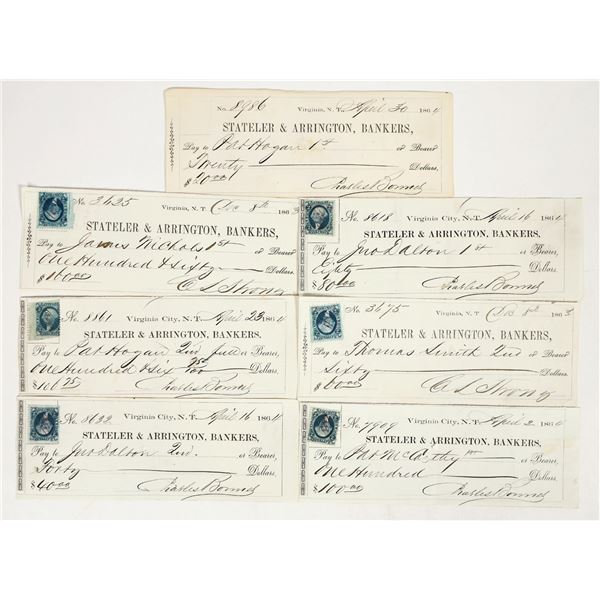 No. 8986 Virginia, N. T. April 30 1864
STATELER & ARRINGTON, BANKERS,
Pay to Pat Hogan 1st or Bearer
Twenty Dollars,
$20.00 Charles Bonner
No. 3425 Virginia, N. T. Dec 8th 1863
STATELER & ARRINGTON, BANKERS,
Pay to James Nichols 1st or Bearer
One Hundred & Sixty Dollars.
$160.00 C L Strong
No. 8618 Virginia City, N.T. April 16 1864
STATELER & ARRINGTON, BANKERS,
Pay to Jno Dalton 1st or Bearer,
Eighty Dollars.
$80.00 Charles Bonner
No. 8861 Virginia City, N.T. April 23 1864
STATELER & ARRINGTON, BANKERS,
Pay to Pat Hogan 2nd or Bearer,
One Hundred & Six 75/100 Dollars,
$106 75 Charles Bonner
No. 3675 Virginia, N. T. Dec 8th 1863
STATELER & ARRINGTON, BANKERS,
Pay to Thomas Smith 2nd or Bearer
Sixty Dollars.
$60.00 C L Strong
No. 8632 Virginia City, N.T. April 16 1864
STATELER & ARRINGTON, BANKERS,
Pay to Jno Dalton 2nd. or Bearer,
Forty Dollars,
$40.00 Charles Bonner
No. 7909 Virginia City, N.T. April 2 1864
STATELER & ARRINGTON, BANKERS,
Pay to Pat McCarthy or Bearer,
One Hundred Dollars.
$100.00 Charles Bonner